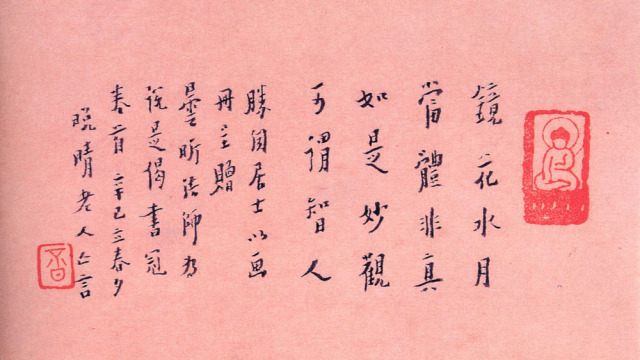 鏡花水月
當體非真
如是妙觀
可謂智人
勝因居士以画
冊贈
曇昕法師為
說是偈書冠
卷首 辛巳立春夕
晚晴老人亡言